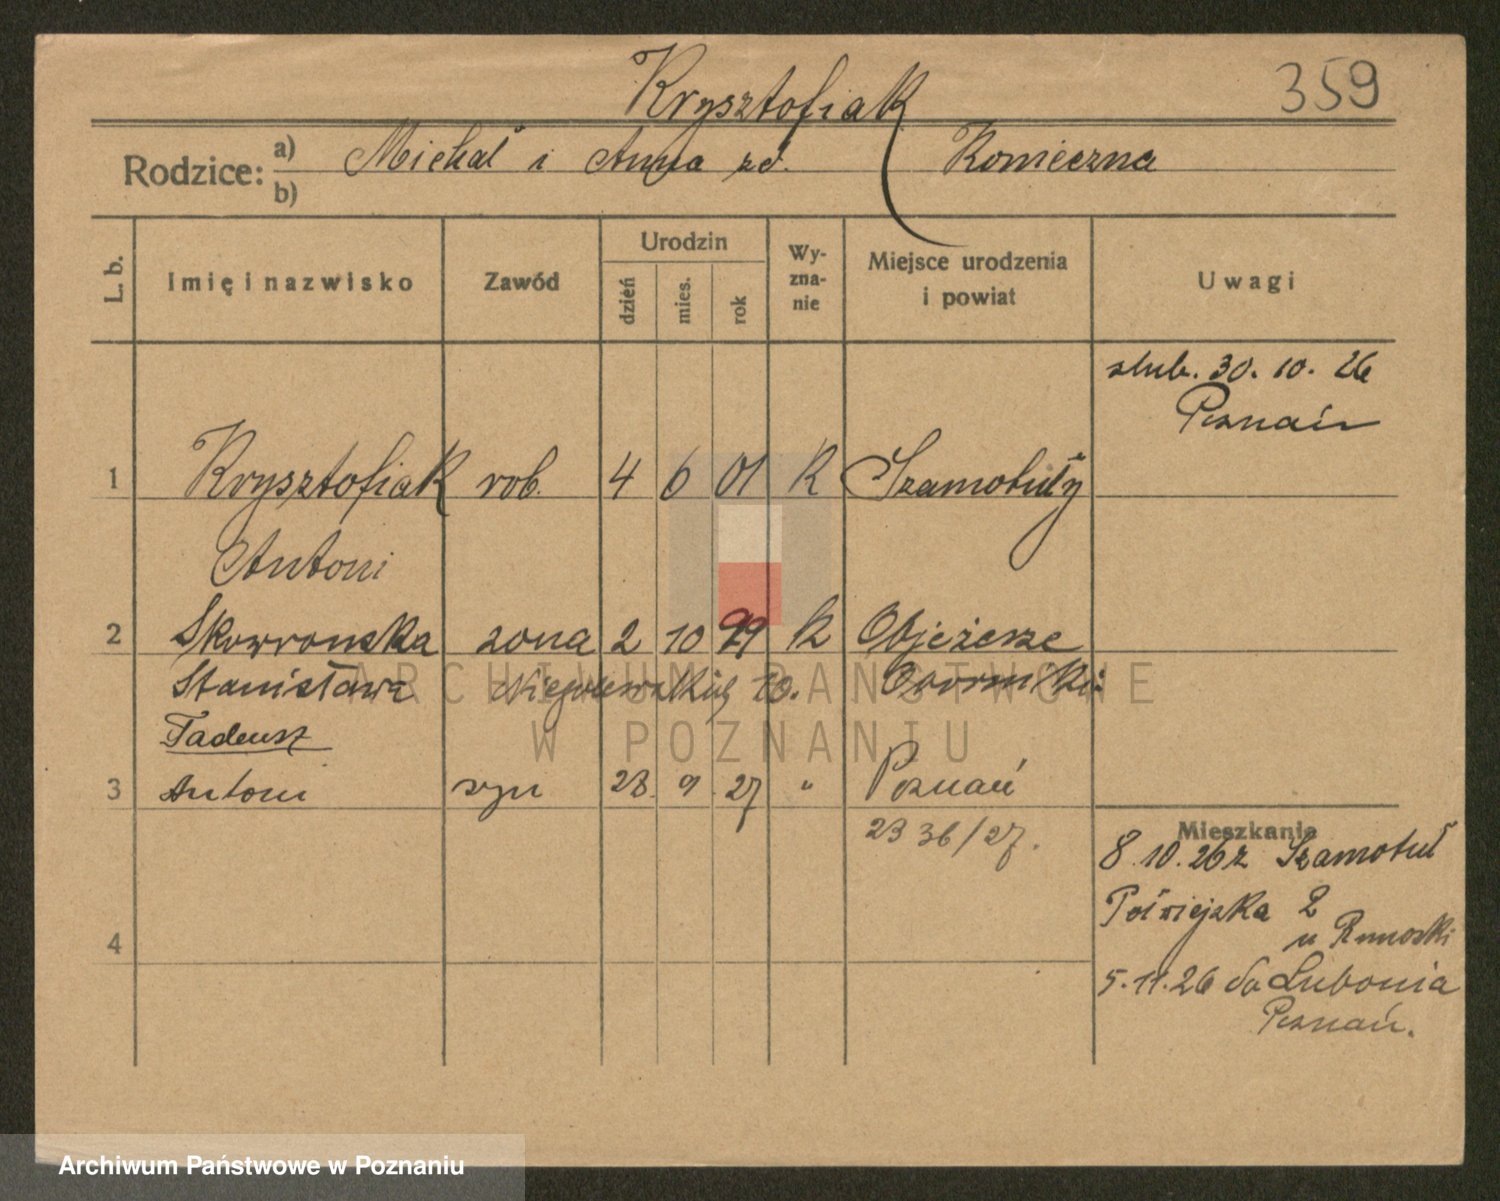 Krysztofiak
359
Rodzice: a) Michał i Anna zd. Konieczna
b)
L. b.
Imię i nazwisko
Zawód
Urodzin
dzień
mies.
rok
Wy-
zna-
nie
Miejsce urodzenia
i powiat
Uwagi
ślub. 30. 10. 26
Poznań
1 Krysztofiak rob. 4 6 01 K Szamotuły
Antoni
2 Skowronska żona 2 10 99 K Objezierze
Stanisława 10. Oborniki
Tadeusz
3 Antoni syn 23. 9. 27 " Poznań
2336/27.
Mieszkanie
8.10.26 z Szamotuł
Półwiejska 2
u
4
5.11.26 do Lubonia
Poznań.
ARCHIWUM PAŃSTWOWE
W POZNANIU
Archiwum Państwowe w Poznaniu